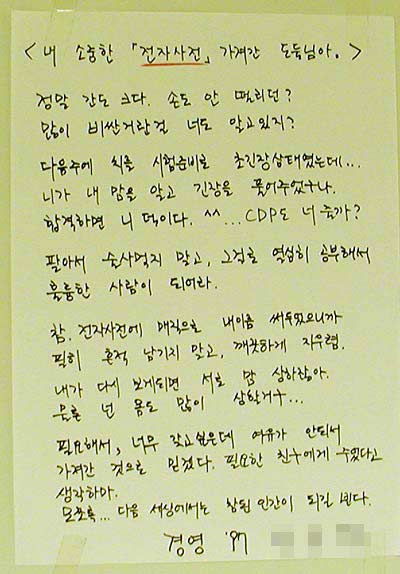 < 내 소중한 「전자사전」 가져간 도둑님아. >
정말 간도 크다. 손도 안 떨리던?
많이 비싼거란걸 너도 알고있지?
다음주에 치를 시험준비로 초긴장상태였는데...
니가 내 맘을 알고 긴장을 풀어주었구나.
합격하면 니 덕이다. ^^ ... CDP도 너 줄까?
팔아서 술사먹지 말고, 그걸로 열심히 공부해서
훌륭한 사람이 되어라.
참. 전자사전에 매직으로 내이름 써두었으니까
필히 흔적 남기지 말고, 깨끗하게 지우렴.
내가 다시 보게되면 서로 맘 상하잖아.
물론 넌 몸도 많이 상할거구...
필요해서, 너무 갖고싶은데 여유가 안되서
가져간 것으로 믿겠다. 필요한 친구에게 주었다고
생각하마.
모쪼록... 다음 세상에서는 참된 인간이 되길 빈다.
경영 '97